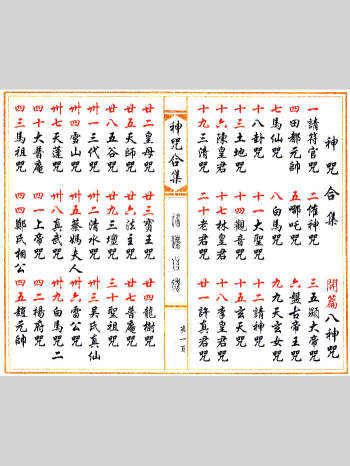 神咒合集
開篇八神咒
一請符官咒 二催神咒 三五顯大帝咒
四田都元帥 五哪吒咒 六盤古帝王咒
七馬仙咒 八白馬咒 九九天玄女咒
十八卦咒 十一大聖咒 十二請神咒
十三土地咒 十四觀音咒 十五玄天咒
十六陳皇君咒 十七林皇君咒 十八李皇君咒
十九三清咒 二十老君咒 廿一許真君咒
神咒合集
第一頁
廿二皇母咒 廿三寶王咒 廿四龍樹咒
廿五天師咒 廿六法主咒
廿八五谷咒 廿九三壇咒 三十聖祖咒
卅一三代咒 卅二清水咒 卅三吳氏真仙
卅四雪山咒 卅五蔡媽夫人 卅六雷公咒
卅七天蓬咒 卅八真武咒 卅九白馬咒二
四十大普庵 四一上帝咒 四二楊府咒
四三馬祖咒 四四鄭氏相公 四五趙元帥